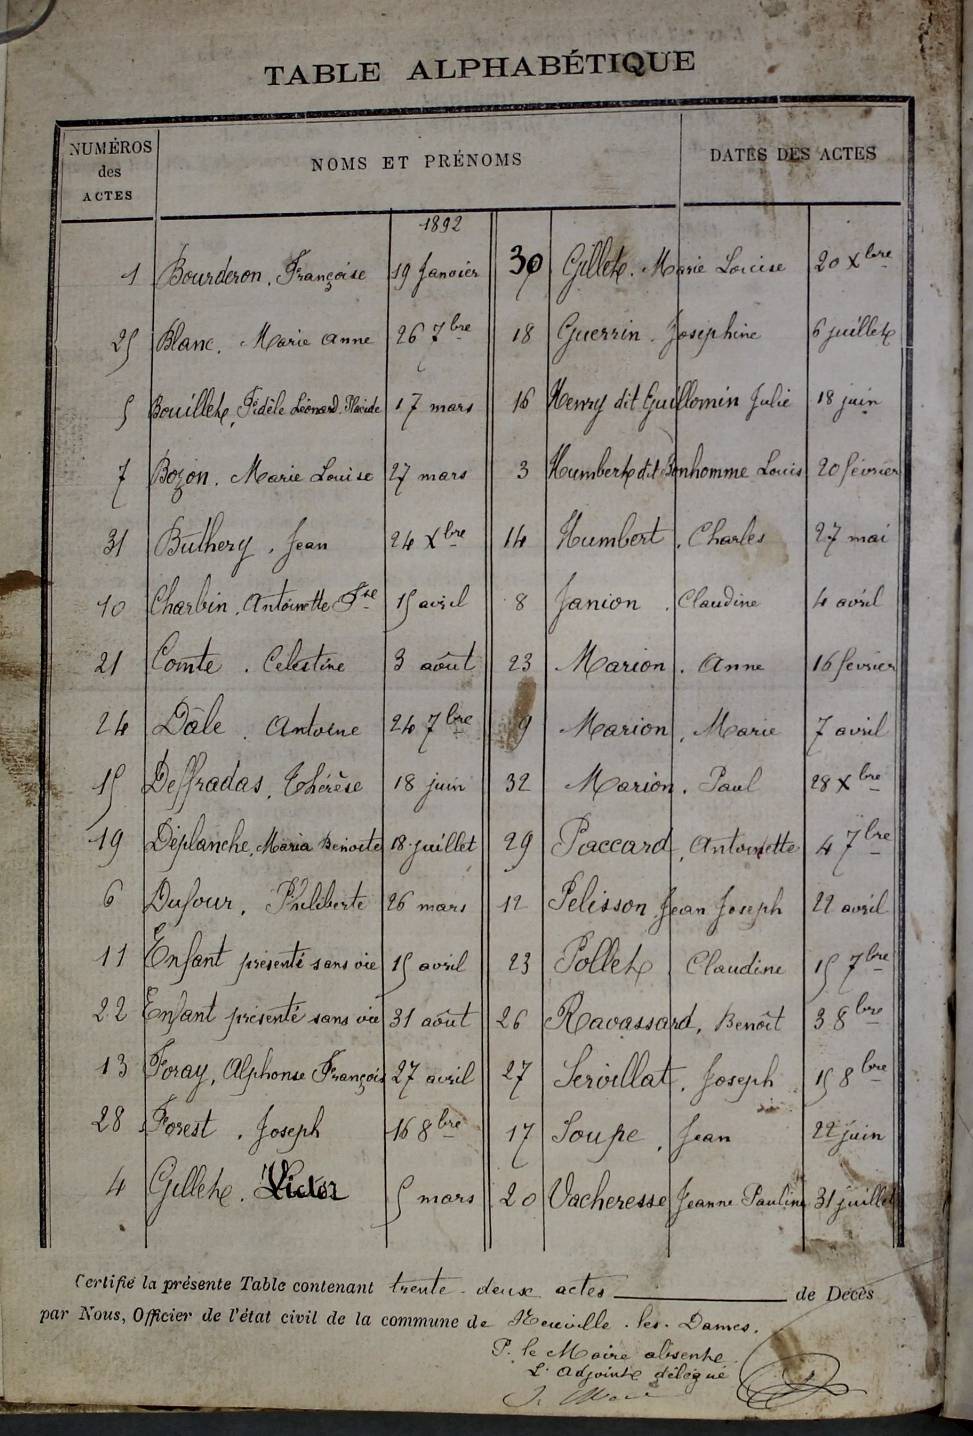 TABLE ALPHABÉTIQUE
NUMÉROS des ACTES
NOMS ET PRÉNOMS
DATES DES ACTES
1892
1 Bourderon, Françoise 19 Janvier
25 Blanc, Marie Anne 26 7bre
5 Bouillet, Fidèle Léonard Placide 17 mars
7 Bozon, Marie Louise 27 mars
31 Buthery, Jean 24 Xbre
10 Charbin, Antoinette Fse 15 avril
21 Comte, Celestine 3 août
24 Dâle, Antoine 24 7bre
15 Deffradas, Thérèse 18 juin
19 Déplanche, Maria Benoite 18 juillet
6 Dufour, Philiberte 26 mars
11 Enfant présenté sans vie 15 avril
22 Enfant présenté sans vie 31 août
13 Foray, Alphonse François 27 avril
28 Forest, Joseph 16 8bre
4 Gillet, Victor 5 mars
30 Gillet, Marie Louise 20 Xbre
18 Guerrin, Joséphine 6 juillet
16 Henry dit Guillomin Julie 18 juin
3 Humbert dit Bonhomme Louis 20 février
14 Humbert, Charles 27 mai
8 Janion, Claudine 4 avril
23 Marion, Anne 16 février
9 Marion, Marie 7 avril
32 Marion, Paul 28 Xbre
29 Paccard, Antoinette 4 7bre
12 Pelisson Jean Joseph 22 avril
23 Pollet, Claudine 15 7bre
26 Ravassard, Benoît 3 8bre
27 Servillat, Joseph 15 8bre
17 Soupe, Jean 22 juin
20 Vacheresse Jeanne Pauline 31 juillet
Certifié la présente Table contenant trente-deux actes de Décès
par Nous, Officier de l'état civil de la commune de Neuville-les-Dames.
P. le Maire absent
L'adjoint délégué